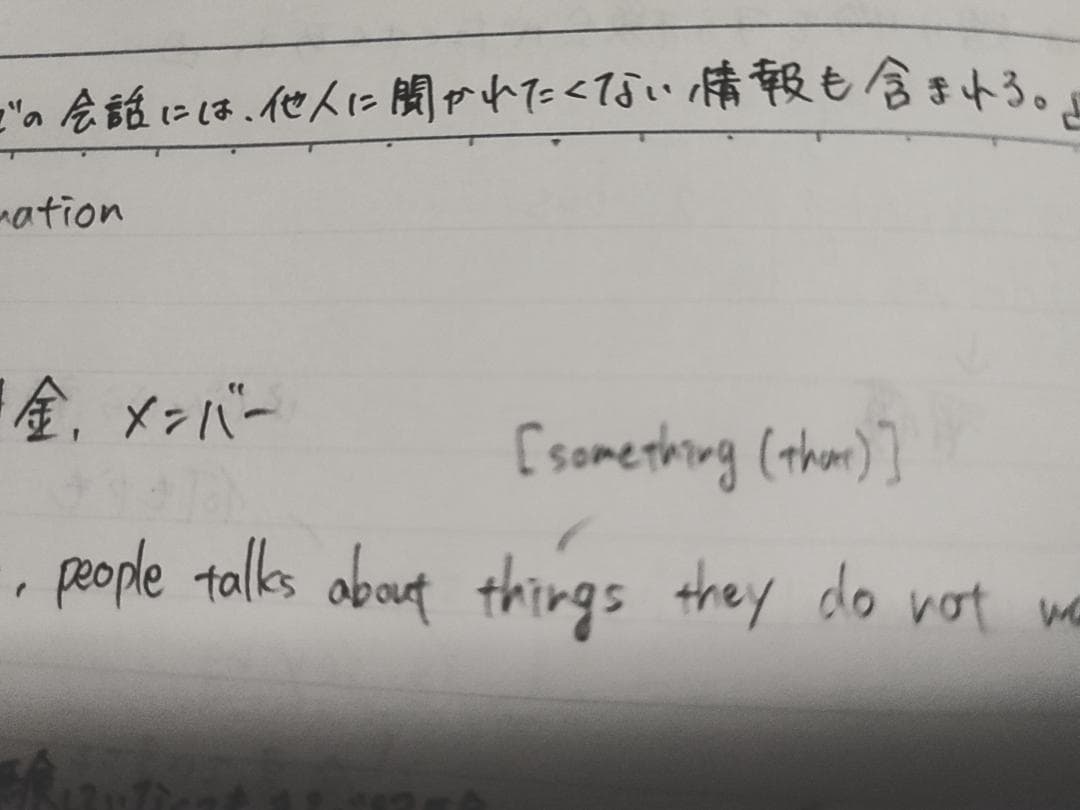 の会話には、他人に聞かれたくない情報も含まれる。
mation
金, メンバー
[something (that)]
, people talks about things they do not